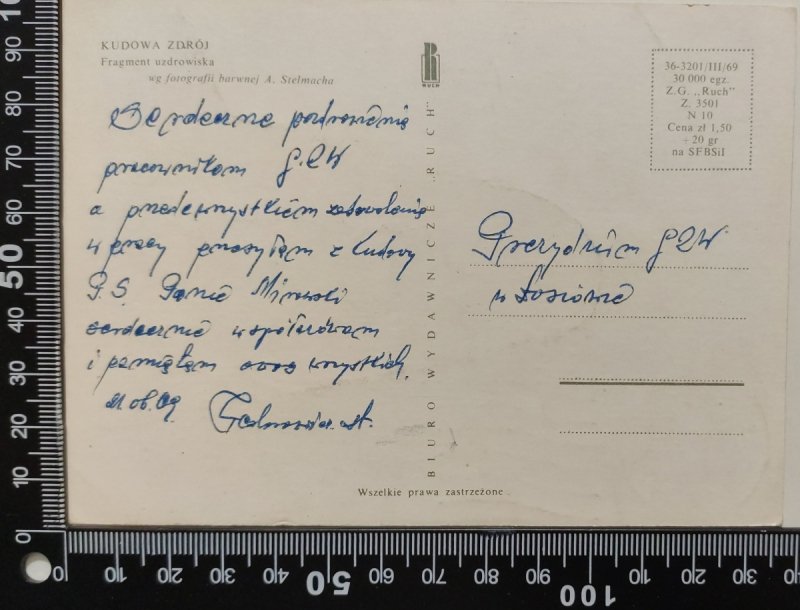 KUDOWA ZDRÓJ
Fragment uzdrowiska
wg fotografii barwnej A. Stelmacha
Serdeczne pozdrowienia
pracownikom GRN
a przedewszystkiem zadowolenia
w pracy przesyłam z Kudowy
P.S. Panie Mirowski
serdecznie współczuwam
i pamiętam o was wszystkich.
21.08.69
RUCH
BIURO WYDAWNICZE „RUCH”
Wszelkie prawa zastrzeżone
36-3201/III/69
30 000 egz.
Z.G. „Ruch”
Z. 3501
N 10
Cena zł 1,50
+20 gr
na SFBSiI
Prezydium GRN
w Łosiowie
100
90
80
70
60
50
40
30
20
10
0
0
10
20
30
40
50
60
70
80
90
100